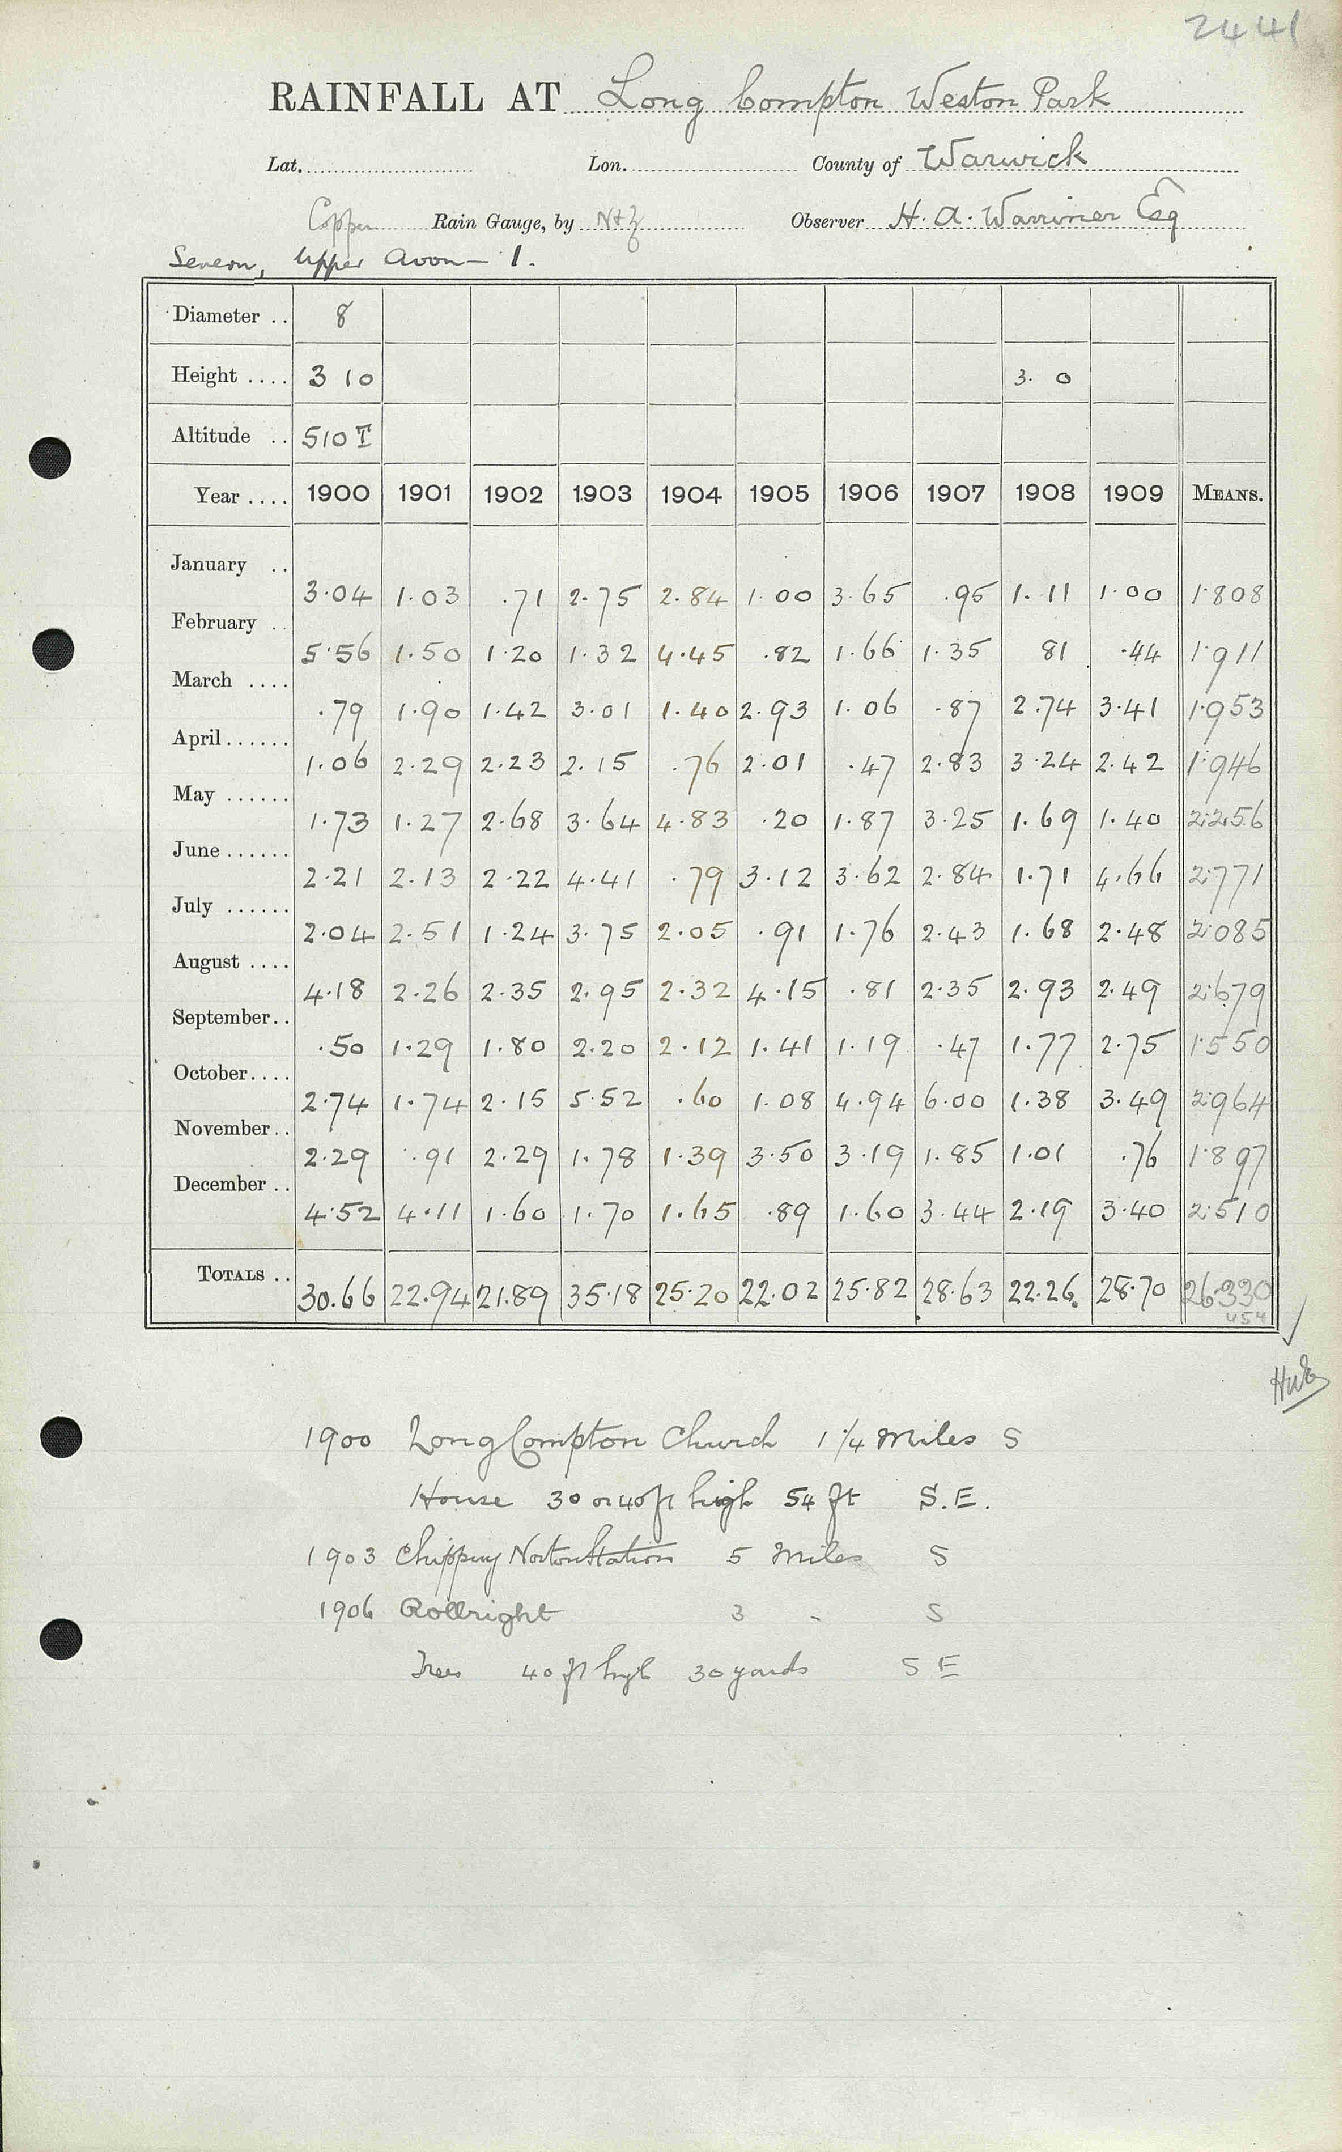 2441
RAINFALL AT Long Compton Weston Park
Lat. Lon. County of Warwick
Copper Rain Gauge, by N+Z Observer H. A. Warriner Esq
Severn, Upper Avon - 1.
Diameter .. 8
Height .... 3 10 3. 0
Altitude .. 510 T
Year .... 1900 1901 1902 1903 1904 1905 1906 1907 1908 1909 MEANS.
January .. 3.04 1.03 .71 2.75 2.84 1.00 3.65 .95 1.11 1.00 1.808
February .. 5.56 1.50 1.20 1.32 4.45 .82 1.66 1.35 81 .44 1.911
March .... .79 1.90 1.42 3.01 1.40 2.93 1.06 .87 2.74 3.41 1.953
April...... 1.06 2.29 2.23 2.15 .76 2.01 .47 2.83 3.24 2.42 1.946
May ...... 1.73 1.27 2.68 3.64 4.83 .20 1.87 3.25 1.69 1.40 2.256
June ...... 2.21 2.13 2.22 4.41 .79 3.12 3.62 2.84 1.71 4.66 2.771
July ...... 2.04 2.51 1.24 3.75 2.05 .91 1.76 2.43 1.68 2.48 2.085
August .... 4.18 2.26 2.35 2.95 2.32 4.15 .81 2.35 2.93 2.49 2.679
September.. .50 1.29 1.80 2.20 2.12 1.41 1.19 .47 1.77 2.75 1.550
October.... 2.74 1.74 2.15 5.52 .60 1.08 4.94 6.00 1.38 3.49 2.964
November.. 2.29 .91 2.29 1.78 1.39 3.50 3.19 1.85 1.01 .76 1.897
December .. 4.52 4.11 1.60 1.70 1.65 .89 1.60 3.44 2.19 3.40 2.510
TOTALS .. 30.66 22.94 21.89 35.18 25.20 22.02 25.82 28.63 22.26 28.70 26.330
1900 Long Compton Church 1 1/4 Miles S
House 30 or 40 ft high 54 ft S.E.
1903 Chipping Norton Station 5 Miles S
1906 Rollright 3 " S
Trees 40 ft high 30 yards S E